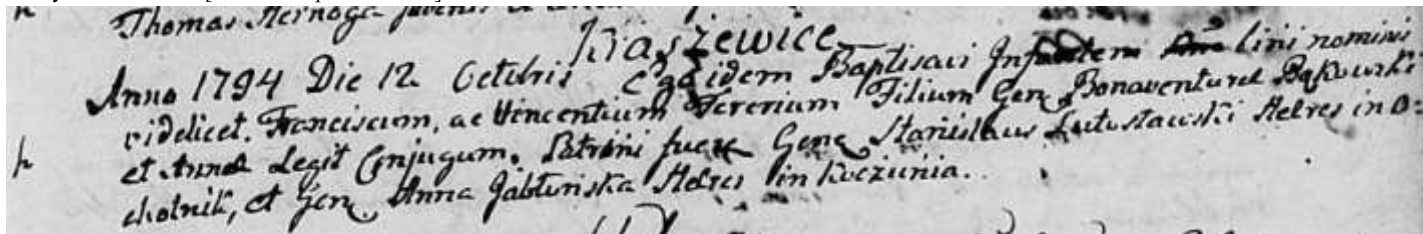 Thomas Hernoga juvenis
Kraszewice
Anno 1794 Die 12. Octobris Eg idem Baptisavi Infantem bini nominis
videlicet. Franciscum, ac Vincentium Fererium Filium Gen Bonaventurae Bąkowski
et Annae Legit Conjugum. Patrini fuere Gene Stanislaus Lutosławski Hæres in O=
chotnik, et Gen Anna Jabłońska Hæres in Kuczunia.